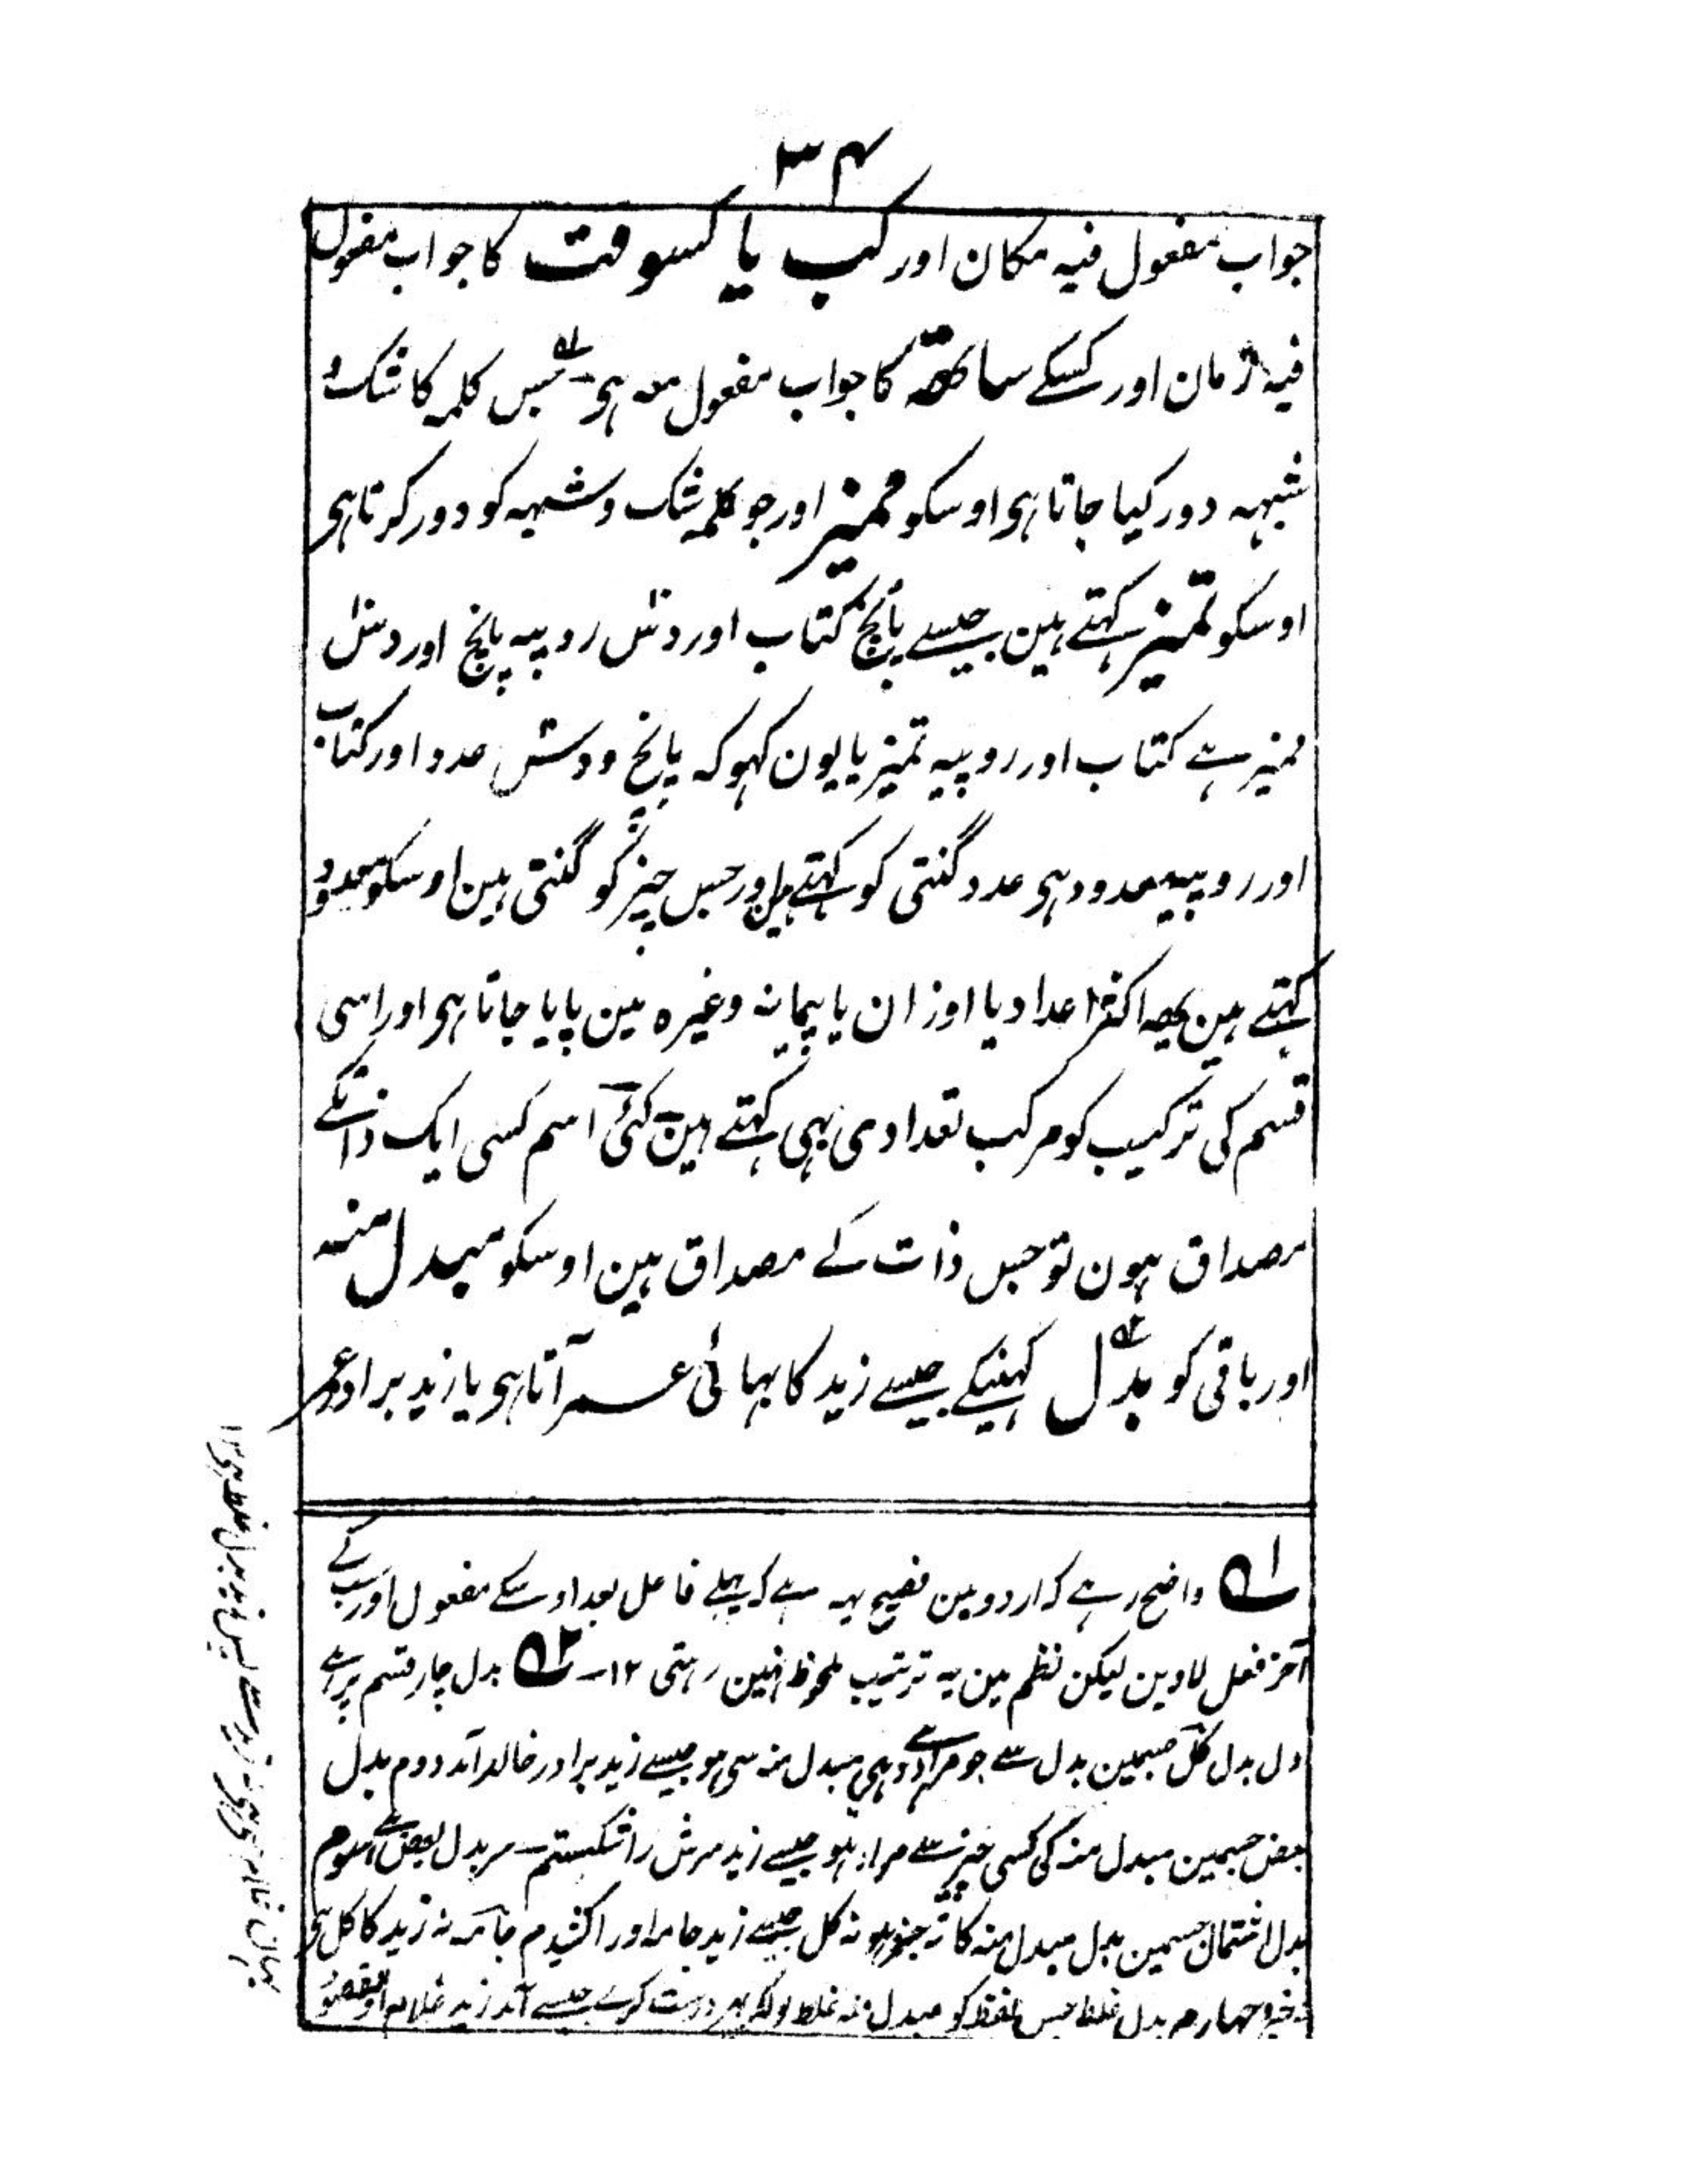 ۳۴
جواب مفعول فیہ مکان اور کب یا کسوقت کا جواب مفعول
فیہ زمان اور کسکے ساتھہ کا جواب مفعول معہ ہی۔ جس کلمہ کا شک و
شبہہ دور کیا جاتا ہی اوسکو ممیز اور جو کلمہ شک و شبہہ کو دور کرتا ہی
اوسکو تمیز کہتے ہین جیسے پانچ کتاب اور دس روپیہ پانچ اور دس
ممیز ہے کتاب اور روپیہ تمیز یا یون کہو کہ پانچ و دس عدد اور کتاب
اور روپیہ معدود ہی عدد گنتی کو کہتے ہین اور جس چیز کو گنتی ہین اوسکو معدود
کہتے ہین یہہ اکثر اعداد یا اوزان یا پیمانہ وغیرہ مین پایا جاتا ہی اور اسی
قسم کی ترکیب کو مرکب تعدادی بہی کہتے ہین۔ کئی اسم کسی ایک ذات کے
مصداق ہون تو جس ذات کے مصداق ہین اوسکو مبدل منہ
اور باقی کو بدل کہینگے جیسے زید کا بہائی عمر آتا ہی یا زید برادر عمر
۱ واضح رہے کہ اردو مین فصیح یہہ ہے کہ پہلے فاعل بعد اوسکے مفعول اور سب کے
آخر فعل لاوین لیکن نظم مین یہ ترتیب ملحوظ نہین رہتی ۱۲۔ ۲ بدل چار قسم پر ہے
ول بدل کل جسمین بدل سے جو مراد ہے وہی مبدل منہ سی ہو جیسے زید برادر خالد آمد دوم بدل
بعض جسمین مبدل منہ کی کسی چیز سے مراد ہو جیسے زید سرش را شکستم۔ سر بدل بعض ہے سوم
بدل اشتمال جسمین بدل مبدل منہ کا نہ جز ہو نہ کل جیسے زید جامہ اورا کشیدم جامہ نہ زید کا کل ہی
نہ جز چہارم بدل غلط جس لفظ کو مبدل منہ غلط بولکر پہر درست کرے جیسے آمد زید غلام او مقصود